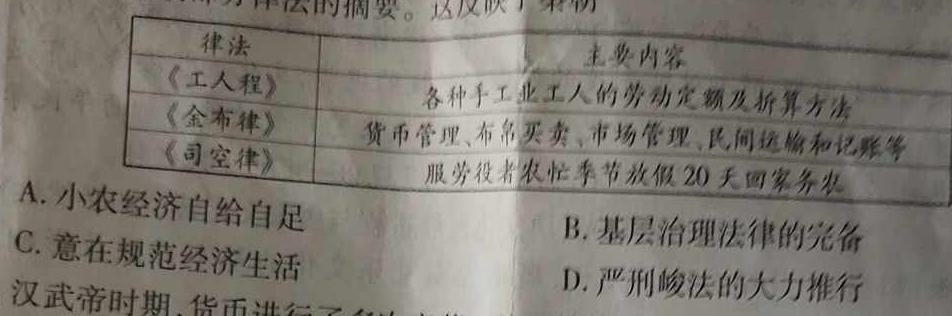 律法的摘要。这反映了秦朝
律法 主要内容
《工人程》 各种手工业工人的劳动定额及折算方法
《金布律》 货币管理、布帛买卖、市场管理、民间运输和记账等
《司空律》 服劳役者农忙季节放假20天回家务农
A. 小农经济自给自足
B. 基层治理法律的完备
C. 意在规范经济生活
D. 严刑峻法的大力推行
汉武帝时期,货币进行了